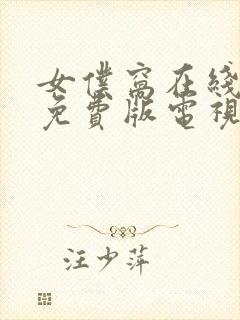 女僕窩在綫
免費版電視
汪少萍